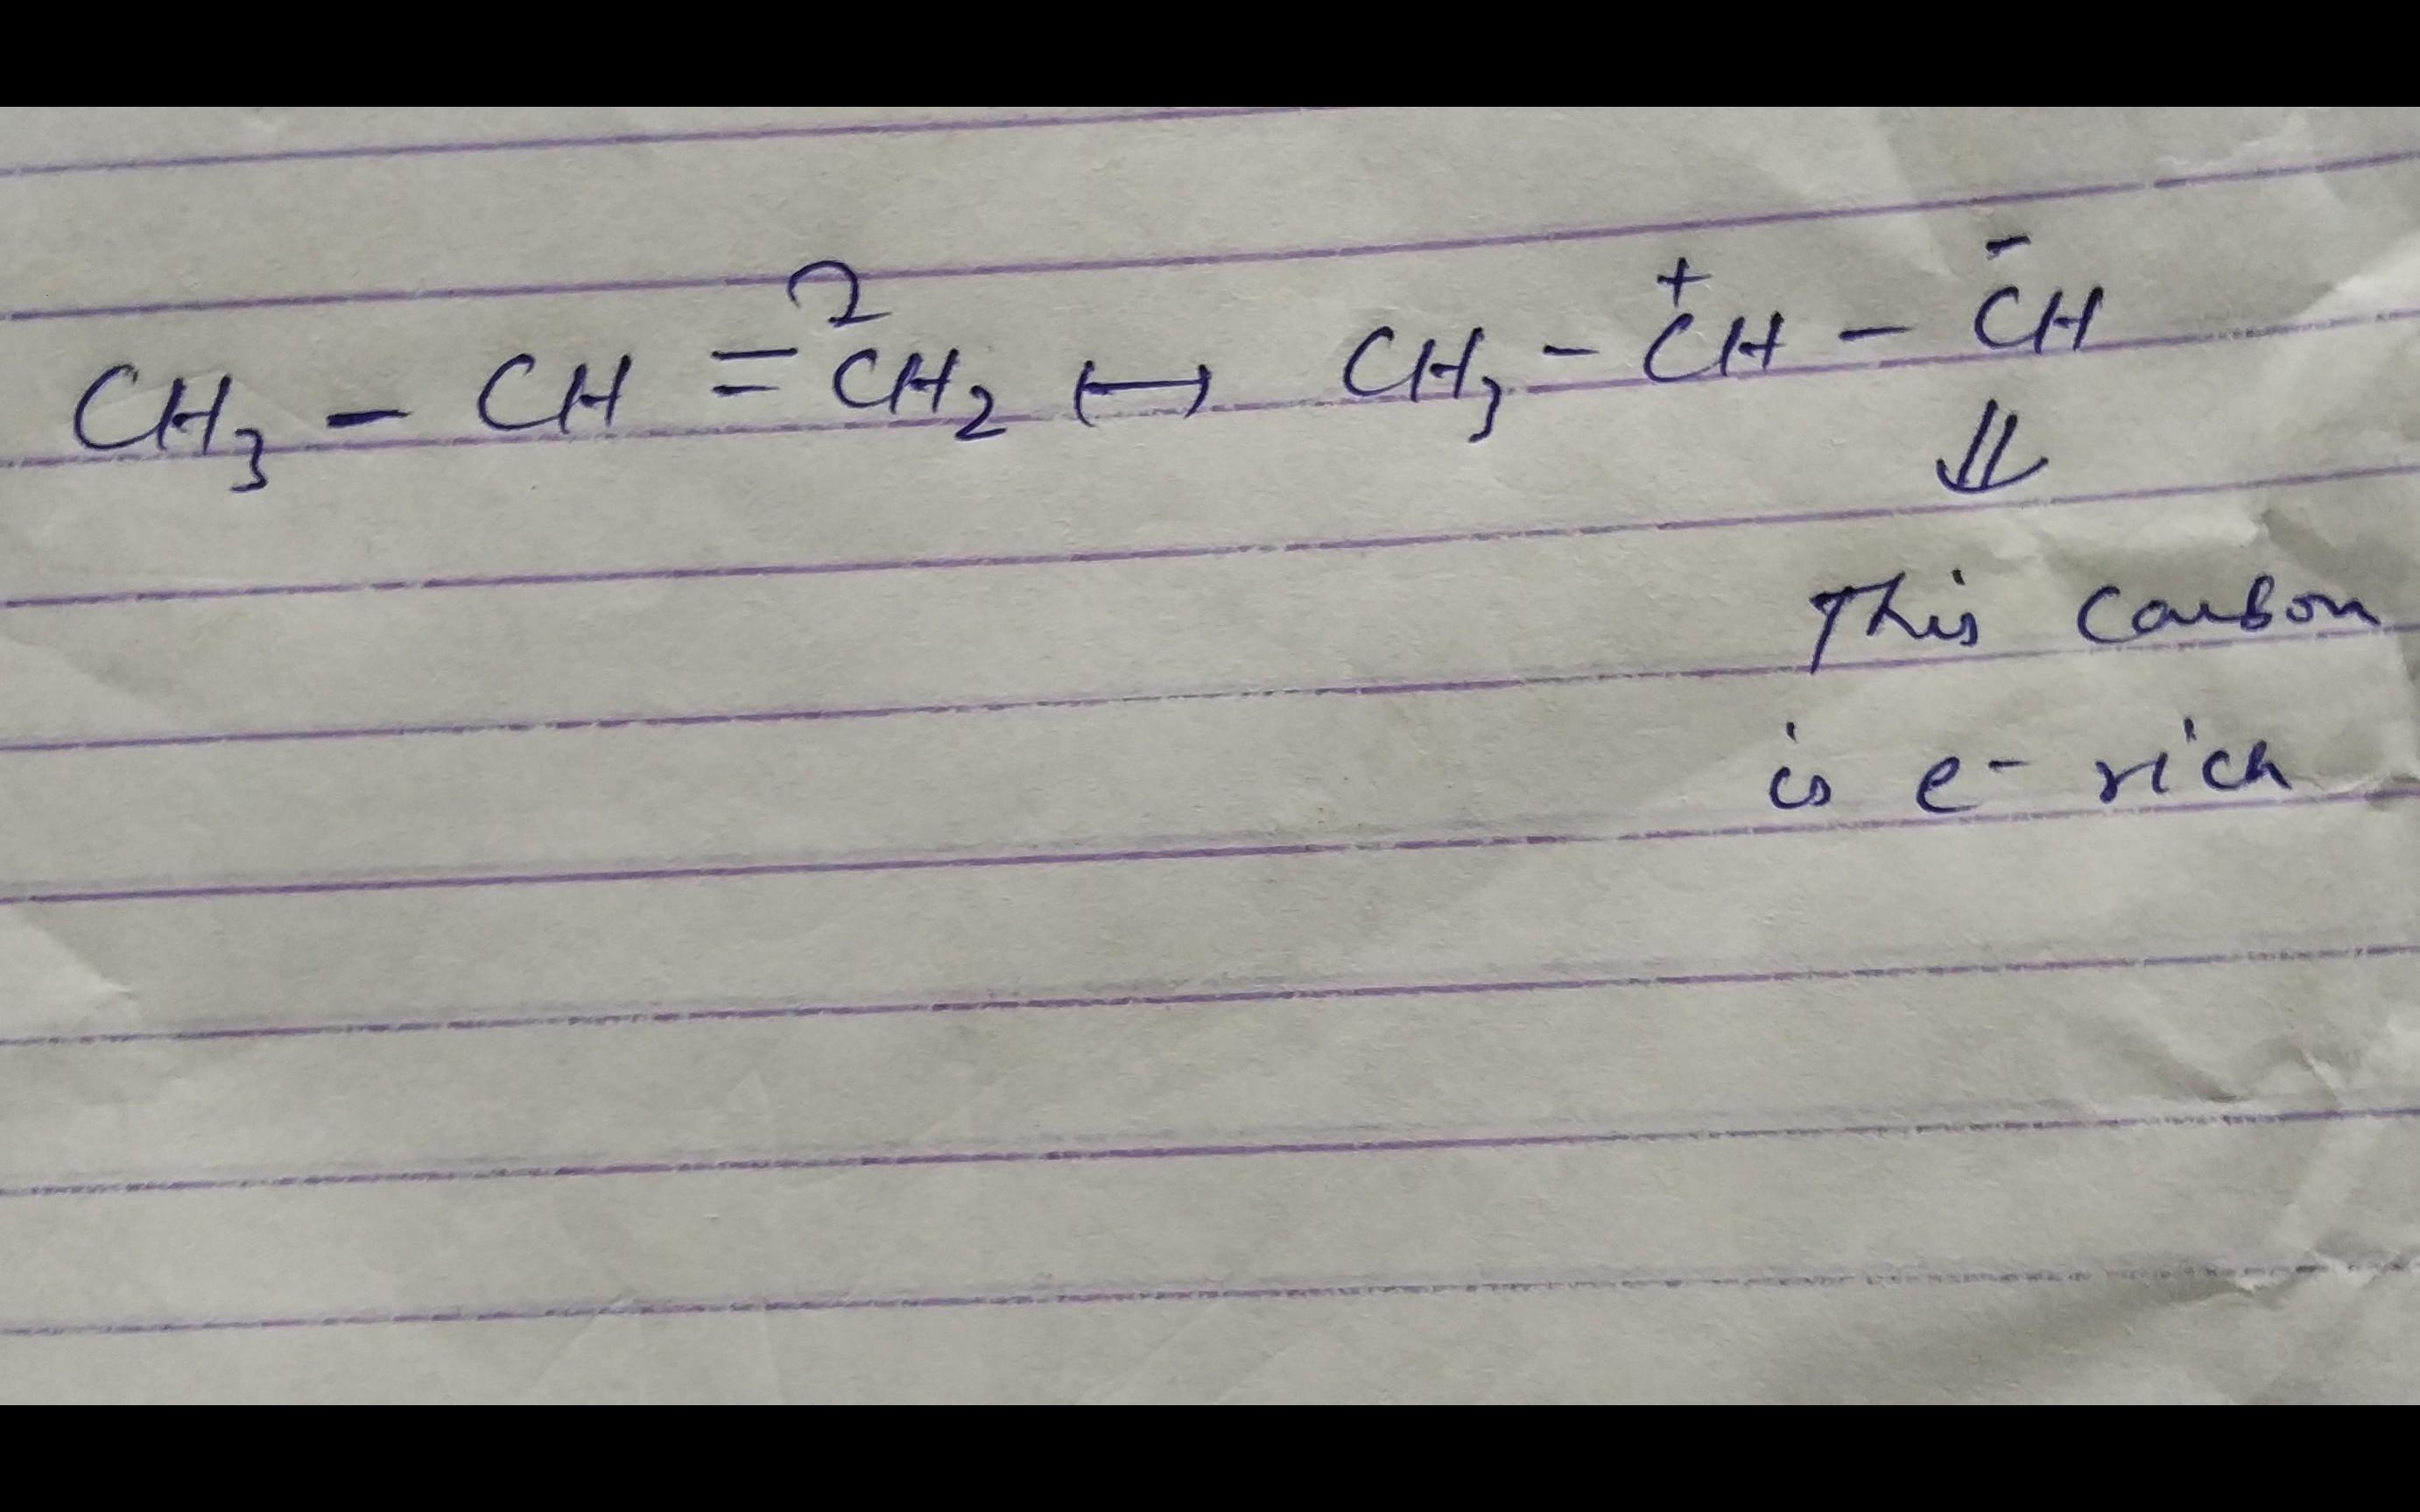 CH₃ - CH = CH₂ ↔ CH₃ - C⁺H - C⁻H
⇓
This carbon
is e⁻ rich